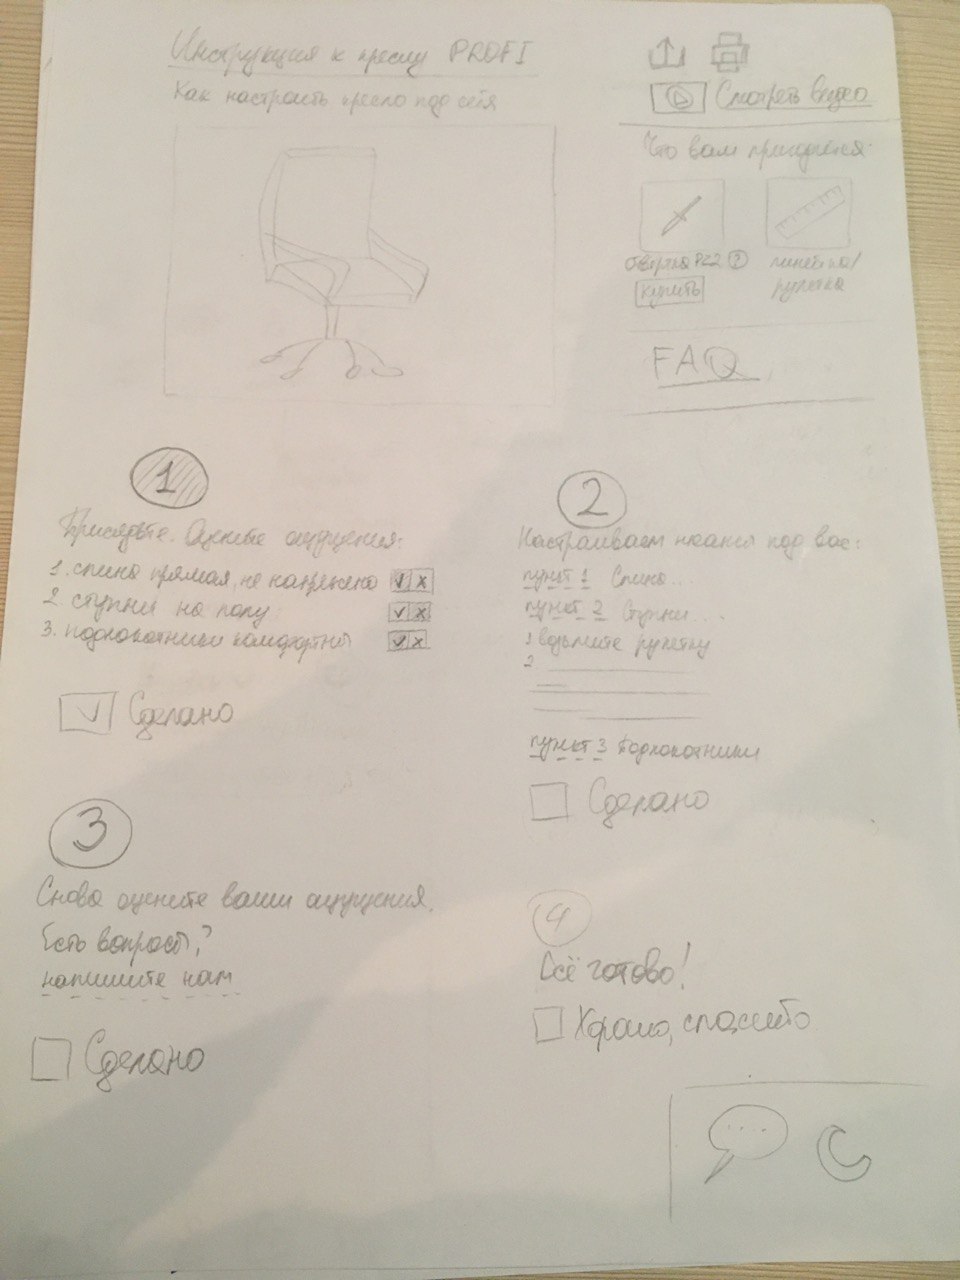 Инструкция к креслу PROFI
Как настроить кресло под себя
Смотреть видео
Что вам пригодится:
отвёртка PZ2 ?
купить
линейка/
рулетка
FAQ
1
Присядьте. Оцените ощущения:
1. спина прямая, не напряжена
2 ступни на полу
3. подлокотники комфортны
Сделано
2
Настраиваем нюансы под вас:
пункт 1 Спина...
пункт 2 Ступни...
1 возьмите рулетку
2
пункт 3 Подлокотники
Сделано
3
Снова оцените ваши ощущения.
Есть вопросы?
напишите нам
Сделано
4
Всё готово!
Хорошо, спасибо